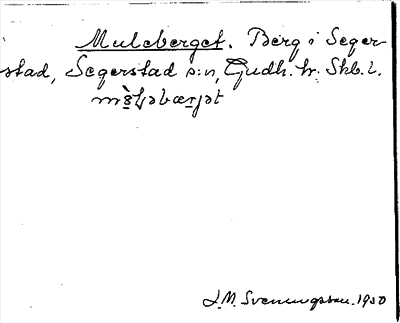 Muleberget. Berg i Seger-
stad, Segerstad s:n, Gudh. hr. Skb. l.
J.M. Svenungsson. 1930